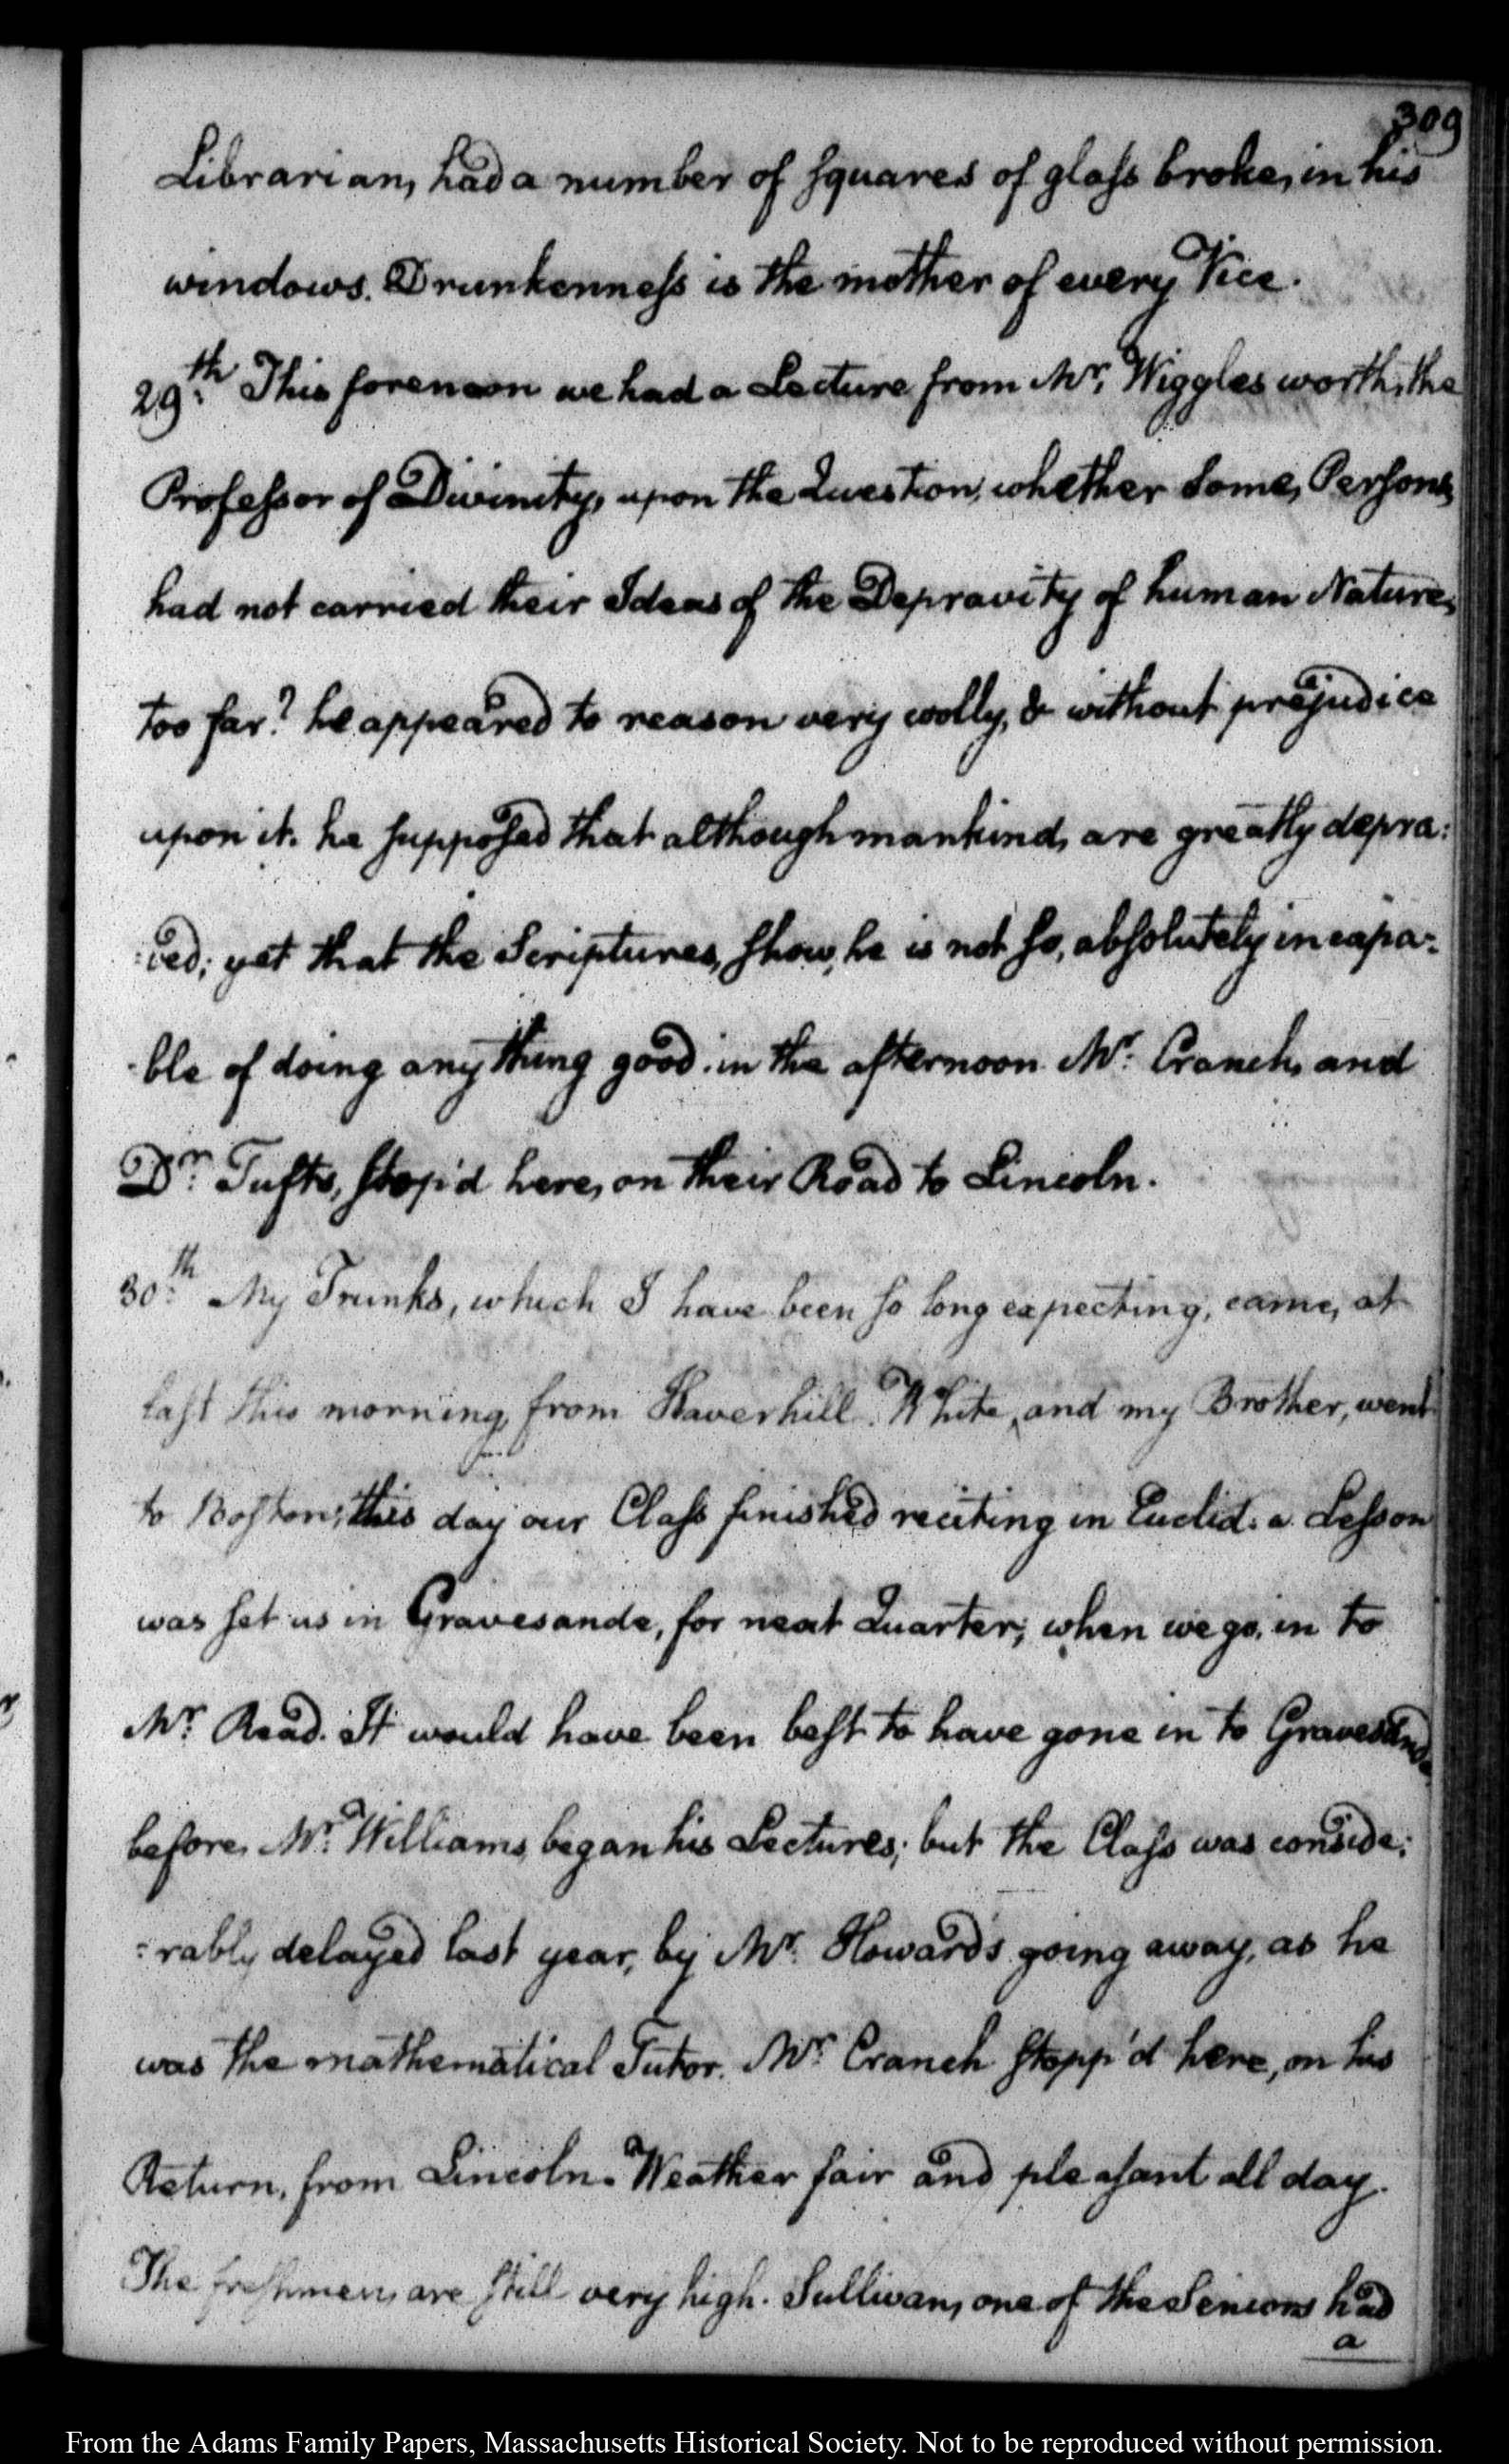 309
Librarian, had a number of squares of glass broke, in his
windows. Drunkenness is the mother of every Vice.
29.th This forenoon we had a Lecture from Mr. Wigglesworth, the
Professor of Divinity, upon the Question, whether some, Persons,
had not carried their Ideas of the Depravity of human Nature,
too far? he appeared to reason very coolly, & without prejudice
upon it. he supposed that although mankind, are greatly depra:
:ved; yet that the Scriptures, show, he is not so, absolutely incapa:
-ble of doing any thing good. in the afternoon Mr. Cranch, and
Dr. Tufts, stop'd here, on their Road to Lincoln.
30.th My Trunks, which I have been so long expecting, came, at
last this morning, from Haverhill. White, and my Brother, went
to Boston; this day our Class finished reciting in Euclid. a Lesson
was set us in Gravesande, for next Quarter; when we go, in to
Mr. Read. It would have been best to have gone in to Gravesande
before, Mr. Williams, began his Lectures; but the Class was conside:
:rably delayed last year, by Mr. Howard's going away, as he
was the mathematical Tutor. Mr. Cranch stopp'd here, on his
Return, from Lincoln. Weather fair and pleasant all day.
The freshmen, are still very high. Sullivan, one of the Seniors had
a
From the Adams Family Papers, Massachusetts Historical Society. Not to be reproduced without permission.